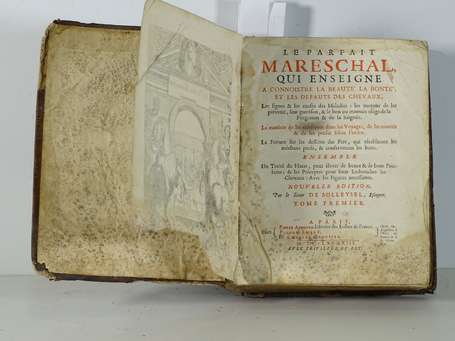 LE PARFAIT
MARESCHAL,
QUI ENSEIGNE
A CONNOISTRE LA BEAUTÉ, LA BONTÉ,
ET LES DEFAUTS DES CHEVAUX,
Les signes & les causes des Maladies : les moyens de les
prévenir, leur guerison, & le bon ou mauvais usage de la
Purgation & de la Saignée.
La maniere de les dans les Voyages, de les nourrir
& de les panser selon l'ordre.
La Ferrure sur les desseins du Fer, qui rétabliront les
méchans pieds, & conserveront les bons.
ENSEMBLE
Un Traité du Haras, pour élever de beaux & de bons Poulains ;
& les Preceptes pour bien Emboucher les
Chevaux : Avec les Figures necessaires.
NOUVELLE EDITION.
Par le Sieur DE SOLLEYSEL, Escuyer.
TOME PREMIER.
A PARIS,
AVEC PRIVILEGE DU ROY.